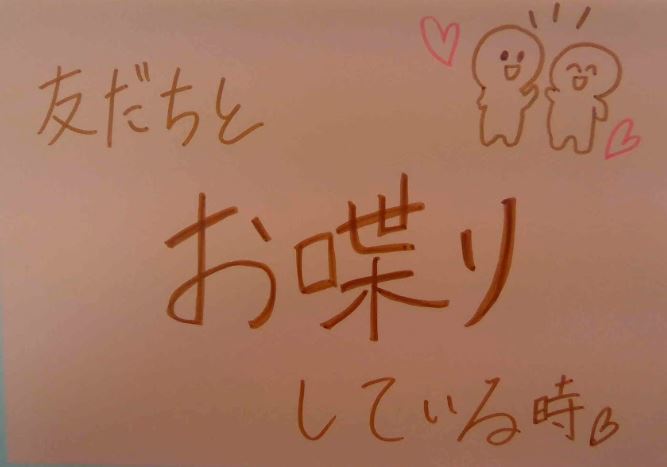 友だちと
お喋り
している時♡